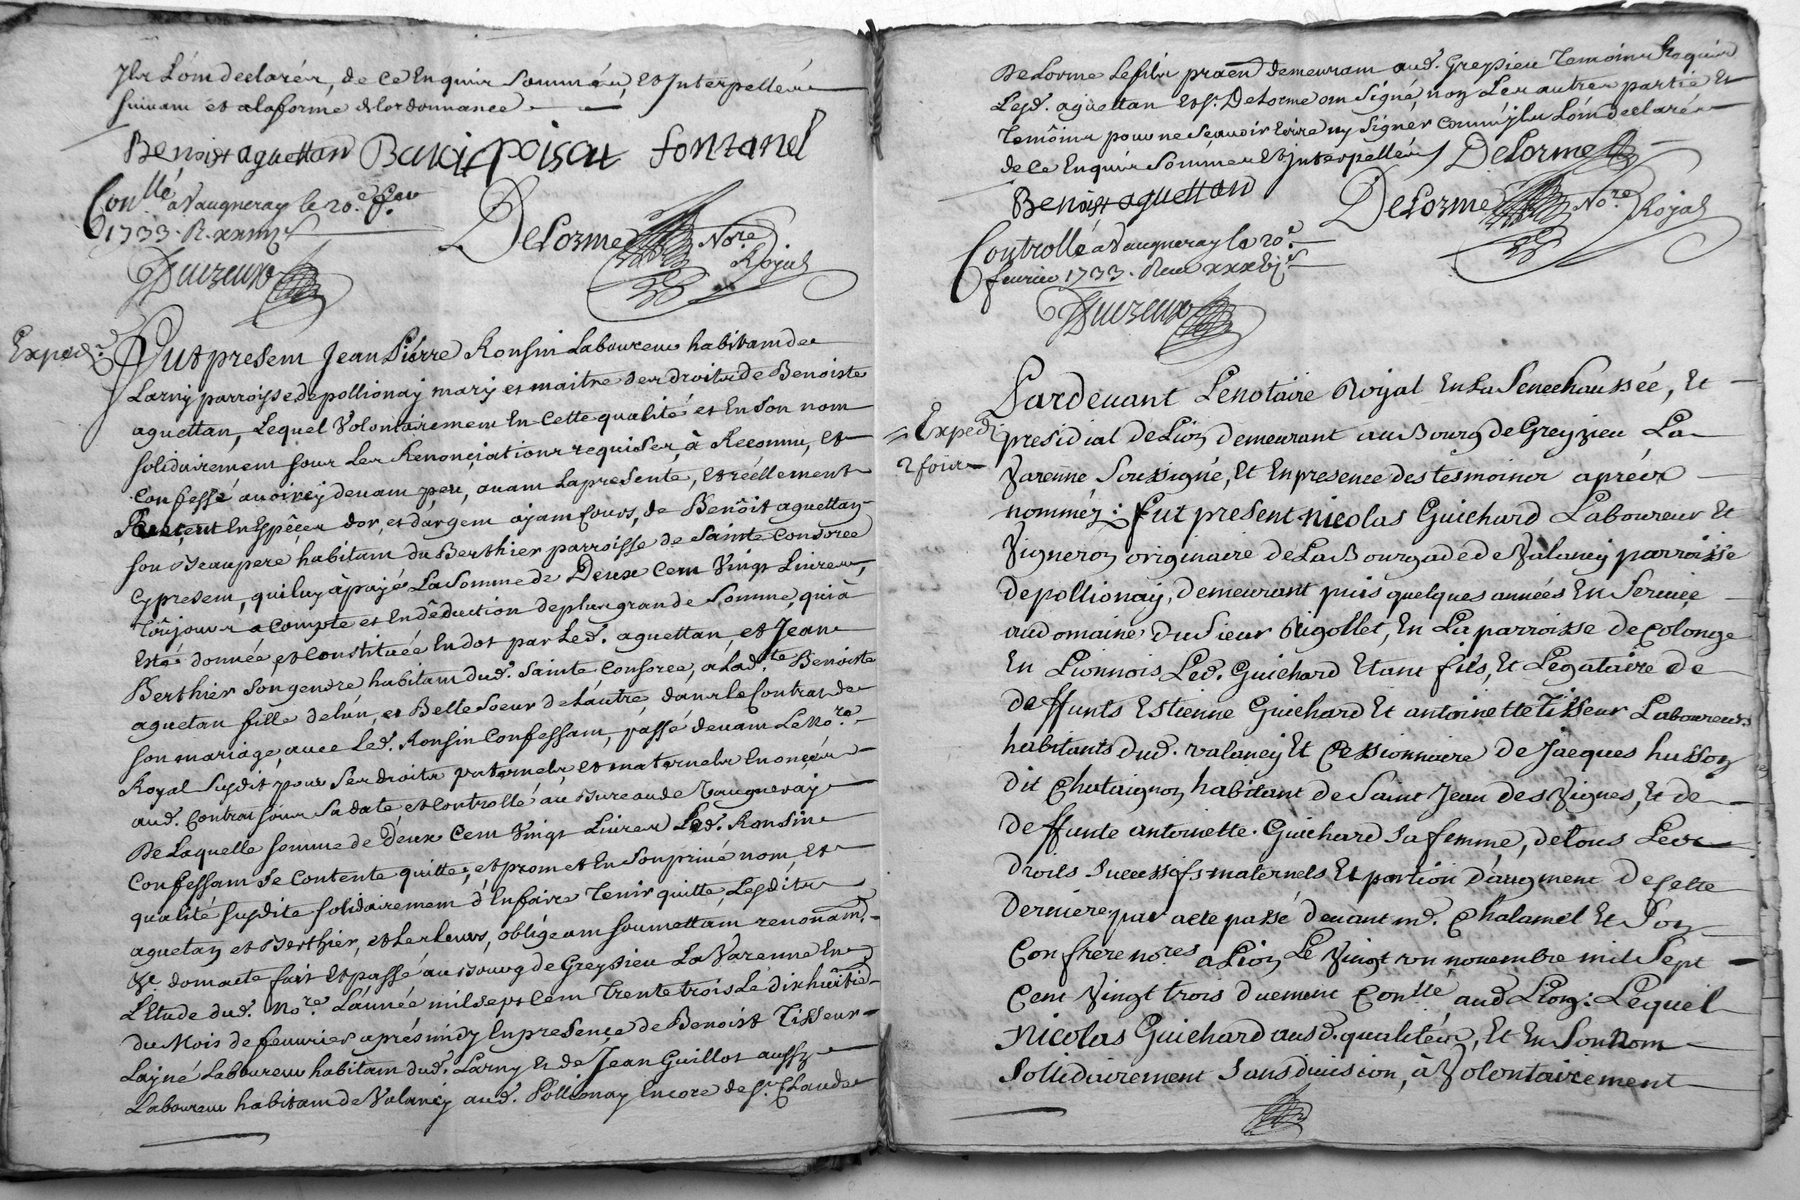 ylz L'ôm declarér, de ce Enquir Sommér, et Interpellér
suivam et alaforme de lordonnance
Benoist aguettan Benoit poisat fontanel
Conllé a Vaugneray le 20.e fev
1733. R. xxiiijs
DeLorme Nore Royal
Duizeux
Exped.
Fut present Jean Piérre Ronsin Laboureur habitam de
Larny parroisse de pollionay mary et maitre des droits de Benoiste
aguettan, Lequel Volontairement En Cette qualité et En son nom
solidairement sour Les Renonciations requises, à Reconnu, et
Confessé avoir cy devam peu, avam La presente, et réellement
Receut En Espêçes dor, et dargem ayam Cours, de Benôit aguettan
son Beaupere habitam du Berthier parroisse de Sainte Consorce
cy presem, qui luy à payé La Somme de Deux Cem Vingt Livres,
Toûjours a compte et En dêduction de plus grande Somme, qui à
Esté donnée, et Constituée En dot par Led. aguettan, et Jean
Berthier son gendre, habitam dud. Sainte Consorce, a Lad.te Benoiste
aguetan fille de lún, et Belle Soeur de Láutre, dans le Contrat de
son mariage, avec Led. Ronsin Confessam, passé devam Le Nore
Royal Susdit pour Ses droits paternels, et maternels Enonçés
aud. Contrat sous Sa date et Controllé au Bureau de Vaugneray
De Laquelle somme de Déux Cem Vingt Livres Led. Ronsin
Confessam Se Contente quitte, et promet En Son privé nom, Et
qualité susdite solidairement d'En faire Tenir quitte, Lesdits
aguetan et Berthier, et Les Leurs, obligeam soumettam renonam,
&c. dom acte fait Et passé au Bourg de Greysieu La Varenne En
L'Etude dud. Nore. L'année mil sept Cem Trente trois Lé dixhuitie
du Mois de feuvrier aprés midy En presençe de Benoist Tisseur
Layné Laboureur habitam dud. Larny Et de Jean Guillot aussy
Laboureur habitam de Valançy aud. Pollionay Encore de Sr. Claude
DeLorme Le fils praén demeuram aud. Gresieu Temoins Requis
Lesd. aguettan Et Sr. DeLorme om Signé, non Les autres partie Et
Temôins pour ne Sçavoir Ecrire ny Signer Comm'ylz L'óm declarér
de Ce Enquir Sommer Et Interpellér DeLorme
Benoist aguettan DeLorme Nore. Royal
Controllé a Vaugneray le 20.e
fevrier 1733. Recu xxxvjs
Duizeux
Pardevant Le notaire Royal En La Senechaussée, Et
Exped. presidial de Lion demeurant au Bourg de Greyzieu La
2 fois Varenne Soussigné, Et En presence des tesmoins aprés
nommez; fut present Nicolas Guichard Laboureur Et
Vigneron originaire de La Bourgade de Valancy parroisse
de pollionay, demeurant puis quelques années En Service
au domaine du Sieur Rigollet, En La parroisse de Colonge
En Lionnois, Led. Guichard Etant fils, Et Legataire de
deffunts Estienne Guichard Et antoinette Tisseur Laboureurs
habitants dud. Valancy Et Cessionnaire de Jacques husson
dit Chataignon, habitant de Saint Jean des Vignes, Et de
deffunte antoinette Guichard Sa femme, de tous Leurs
droits Successifs maternels Et portion D'augment de Cette
derniere par acte passé devant md. Chalamel Et Son
Confrere nores a Lion Le Vingt un novembre mil Sept
Cent Vingt trois duement Conllé aud. Lion: Lequel
Nicolas Guichard ausd. qualités, Et En Son Nom
Sollidairement Sans division, à Volontairement